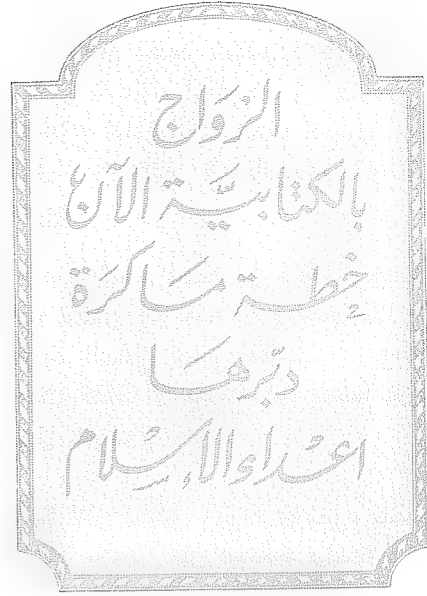 الزَواج
بالكتابيَّة الآن
خِطة مَاكرَة
دبّرهَا
اعداء الإسلام